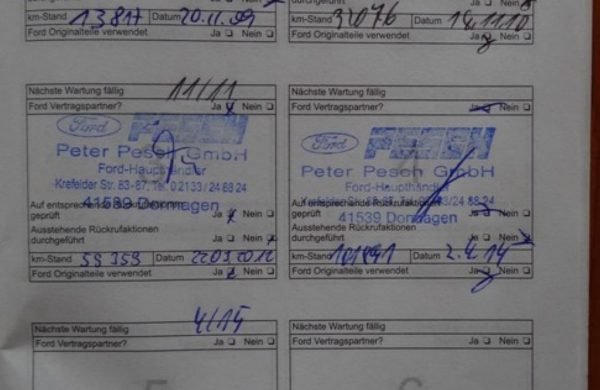 durchgeführt Ja Nein
km-Stand 13817 Datum 20.11.09
Ford Originalteile verwendet Ja Nein
durchgeführt Ja Nein
km-Stand Datum
Ford Originalteile verwendet Ja Nein
Nächste Wartung fällig 11/11
Ford Vertragspartner? Ja Nein
Ford
Peter Pesch GmbH
Ford-Haupthändler
Krefelder Str. 83-87, Tel. 02133/24 88 24
41539 Dormagen
Auf entsprechende
geprüft Ja Nein
Ausstehende Rückrufaktionen
durchgeführt Ja Nein
km-Stand 59359 Datum 22.03.2012
Ford Originalteile verwendet Ja Nein
Nächste Wartung fällig
Ford Vertragspartner? Ja Nein
Ford
Peter Pesch GmbH
Ford-Haupthändler
Krefelder Str. 83-87, Tel. 02133/24 88 24
41539 Dormagen
Auf entsprechende
geprüft Ja Nein
Ausstehende Rückrufaktionen
durchgeführt Ja Nein
km-Stand Datum 2.4.14
Ford Originalteile verwendet Ja Nein
Nächste Wartung fällig 4/15
Ford Vertragspartner? Ja Nein
Nächste Wartung fällig
Ford Vertragspartner? Ja Nein